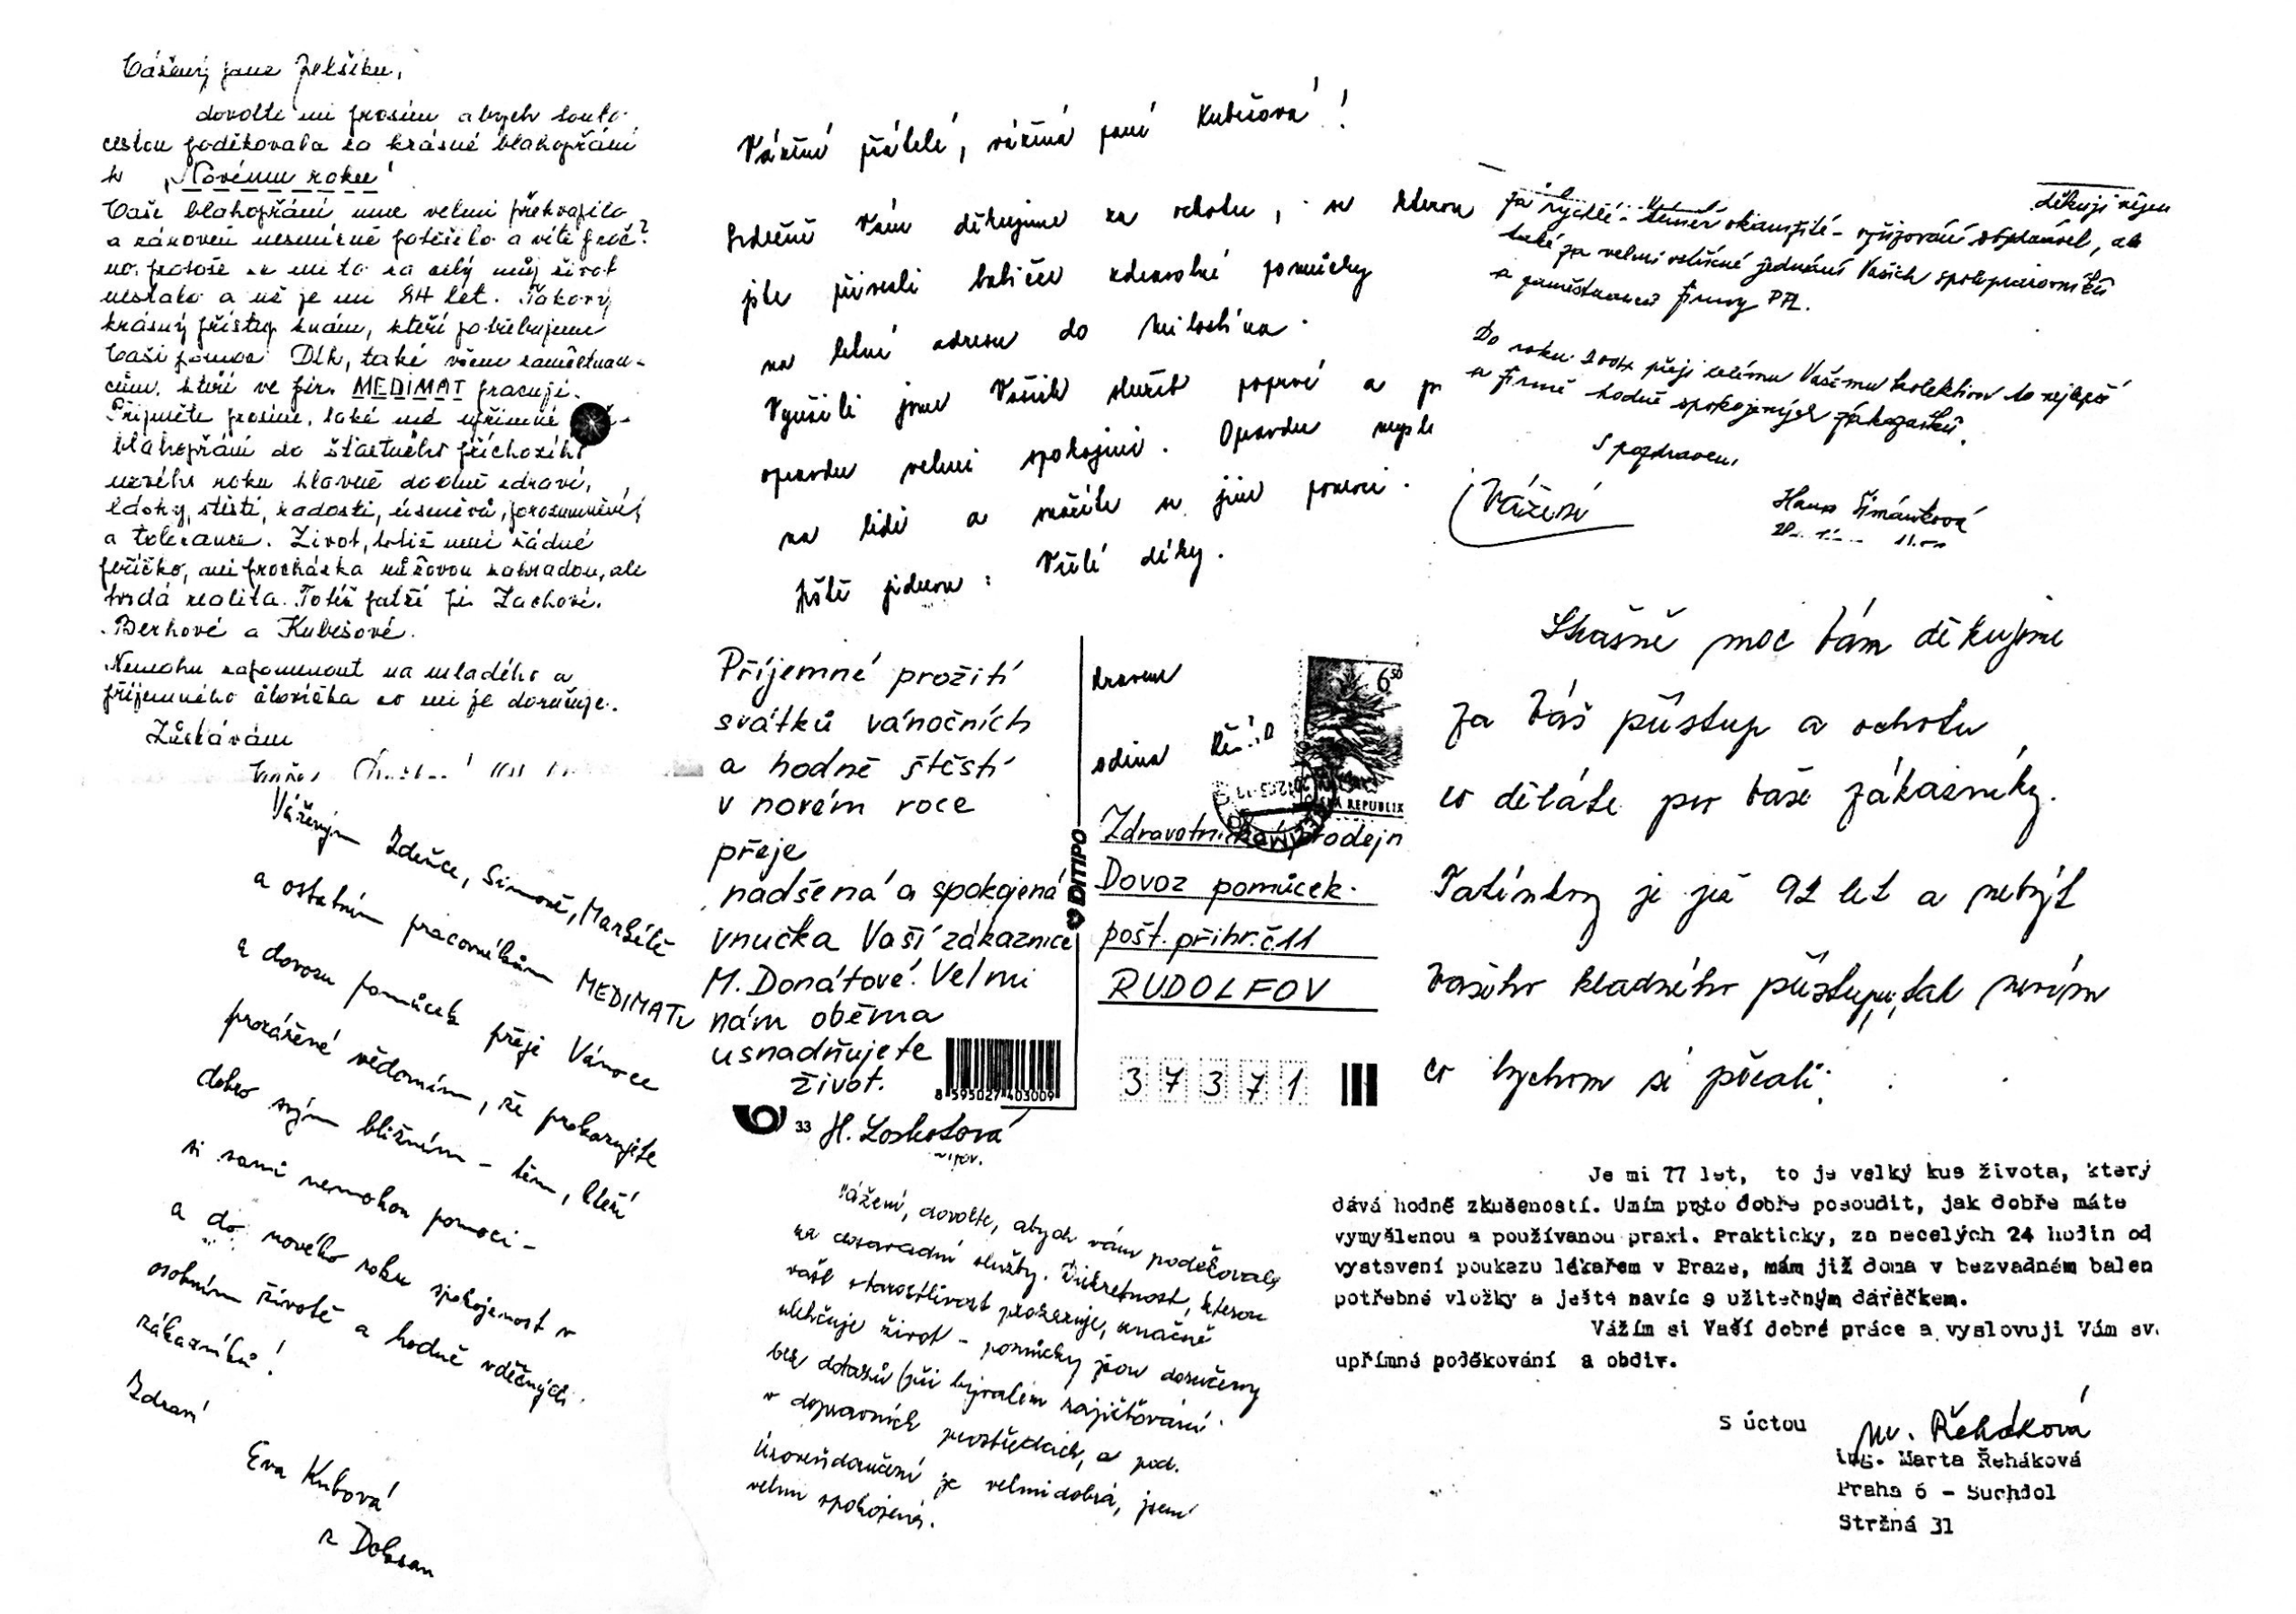 Vážený pane Jelšíku,
dovolte mi prosím abych touto
cestou poděkovala za krásné blahopřání
k „Novému roku“
Vaše blahopřání mne velmi překvapilo
a zároveň nesmírně potěšilo a víte proč?
no, protože se mi to za celý můj život
nestalo a už je mi 84 let. Takový
krásný přístup k nám, kteří potřebujeme
Vaši pomoc Dík, také všem zaměstnan-
cům, kteří ve fir. MEDIMAT pracují.
Přijměte prosím, také mé upřímné
blahopřání do šťastného příchozího
nového roku hlavně hodně zdraví,
lásky, štěstí, radosti, úsměvů, porozumnění,
a tolerance. Život, totiž není žádné
peříčko, ani procházka růžovou zahradou, ale
tvrdá realita. Totéž patří pí. Zachové.
Berkové a Kubešové.
Nemohu zapomenout na mladého a
příjemného človíčka co mi je doručuje.
Zůstávám
Váženým Zdeňce, Simoně, Markétě
a ostatním pracovníkům MEDIMATu
a dovozu pomůcek přeji Vánoce
prozářené vědomím, že prokazujete
dobro svým bližním – těm, kteří
si sami nemohou pomoci –
a do nového roku spokojenost v
osobním životě a hodně vděčných
zákazníků!
Zdraví
Eva Kubová
z Dobřan
Vážení přátelé, vážená paní Kubešová!
Srdečně Vám děkujeme za ochotu, se kterou
jste přivezli babičce zdravotní pomůcky
na letní adresu do Milostína.
Využili jsme Vašich služeb poprvé a
opravdu velmi spokojeni. Opravdu
na lidi a snažíte se jim pomoci.
Ještě jednou: Vřelé díky.
Příjemné prožití
svátků vánočních
a hodně štěstí
v novém roce
přeje
nadšená a spokojená
vnučka Vaší zákaznice
M. Donátové. Velmi
nám oběma
usnadňujete
život.
8 595027 403009
33 H. Loskotová
DITIPO
6 50
ČESKÁ REPUBLIKA
rodina
Zdravotnická prodejn
Dovoz pomůcek
pošt. přihr. č. 11
RUDOLFOV
3 7 3 7 1
Vážení, dovolte, abych vám poděkovala
za dosavadní služby. Diskretnost, kterou
vaše starostlivost prokazuje, značně
ulehčuje život – pomůcky jsou doručeny
bez dotazů (při bývalém zajišťování
v dopravních prostředcích, a pod.
Úroveň doručení je velmi dobrá, jsem
velmi spokojená.
děkuji nejen
za rychlé – téměř okamžité – vyřizování objednávek, ale
také za velmi vstřícné jednání Vašich spolupracovníků
a zaměstnanců firmy PZL.
Do roku 2004 přeji celému Vašemu kolektivu to nejlepší
a firmě hodně spokojených zákazníků.
S pozdravem
Vážení
Hana Šimánková
Strašně moc Vám děkujeme
za Váš přístup a ochotu,
co děláte pro Vaše zákazníky.
Tatínkovy je již 92 let a nebýt
Vašeho kladného přístupu, tak nevím
co bychom si počali.
Je mi 77 let, to je velký kus života, který
dává hodně zkušeností. Umím proto dobře posoudit, jak dobře máte
vymyšlenou a používanou praxi. Prakticky, za necelých 24 hodin od
vystavení poukazu lékařem v Praze, mám již doma v bezvadném balen
potřebné vložky a ještě navíc s užitečným dárečkem.
Vážím si Vaší dobré práce a vyslovuji Vám sv.
upřímné poděkování a obdiv.
S úctou
Řeháková
ing. Marta Řeháková
Praha 6 - Suchdol
Stržná 31